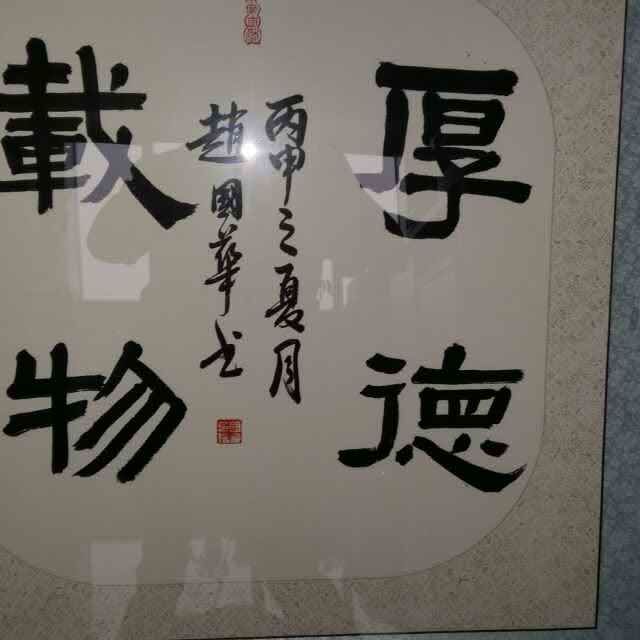 厚德
丙申之夏月
趙國華书
載物